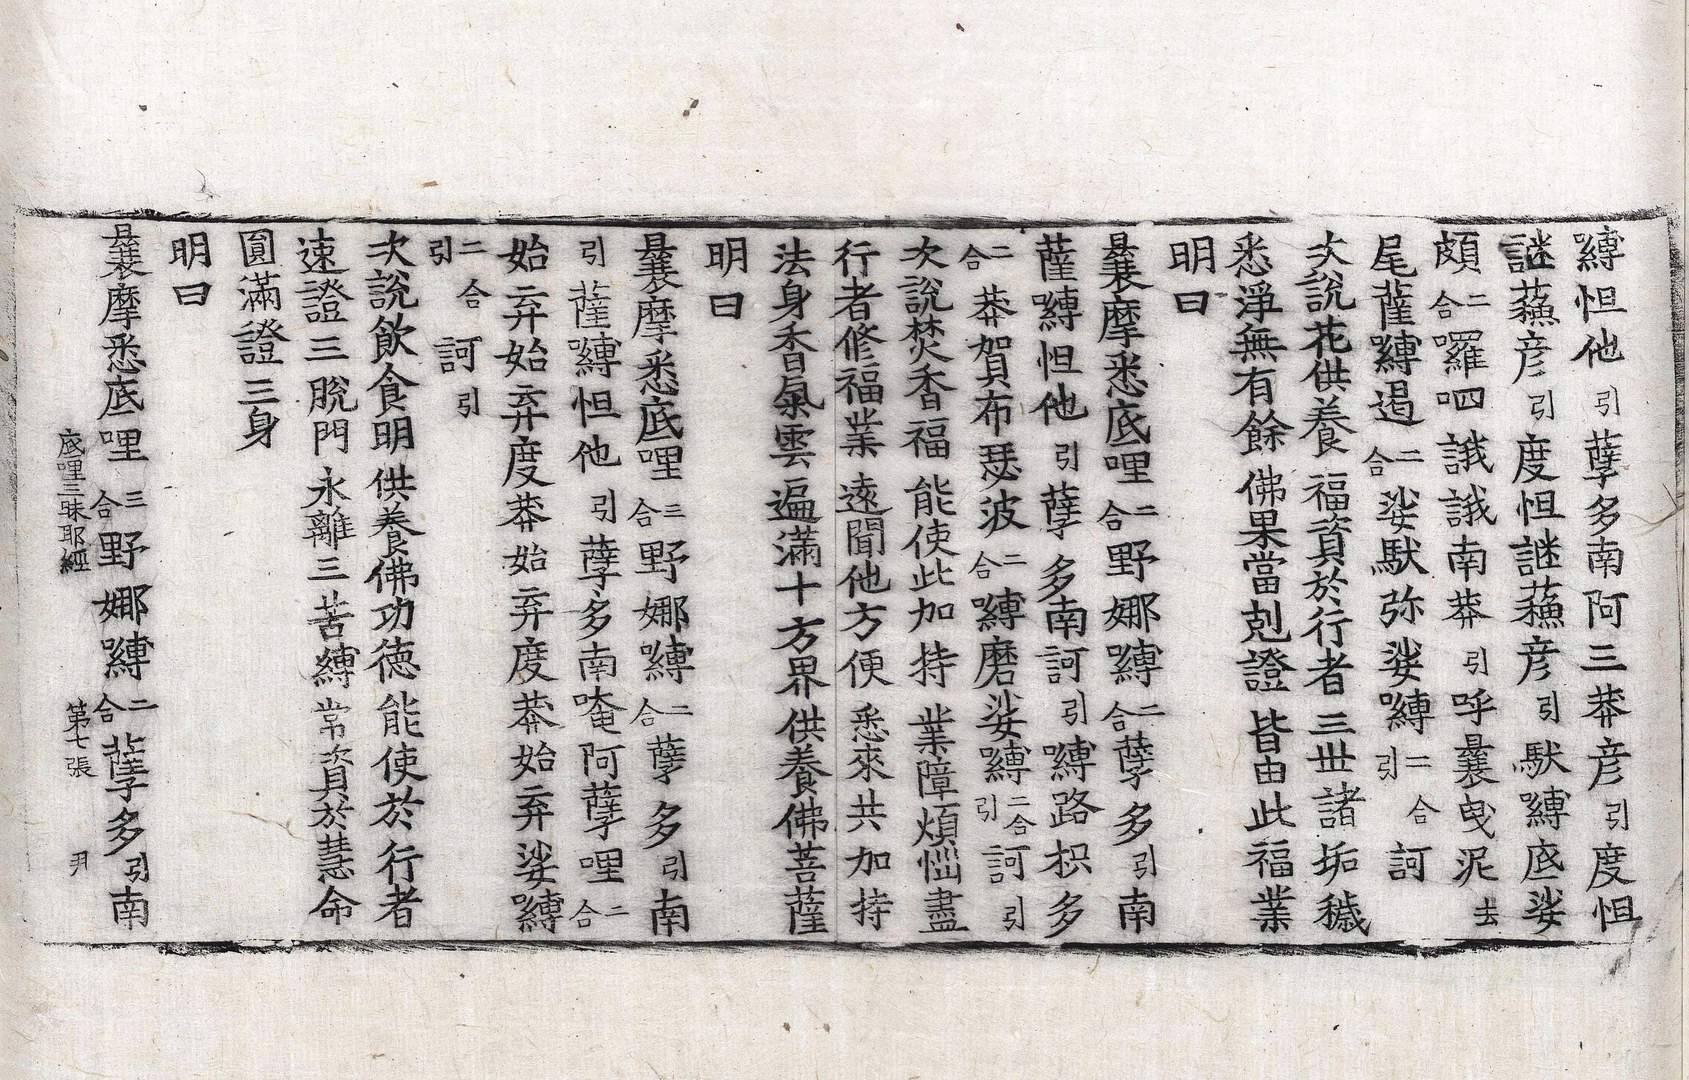 嚩怛他引孽多南阿三莽彥引度怛
謎蘓彥引度怛謎蘓彥引馱嚩底娑
頗二合囉呬誐誐南莽引呼曩曳泥去
尾薩嚩遏二合娑馱弥娑嚩二合引訶
次說花供養福資於行者三世諸垢穢
悉淨無有餘佛果當剋證皆由此福業
明曰
曩摩悉底哩二合野娜嚩二合孽多引南
薩嚩怛他引孽多南訶引嚩路枳多
二合莽賀布瑟波二合嚩磨娑嚩二合引訶引
次說焚香福能使此加持業障煩惱盡
行者修福業遠聞他方便悉來共加持
法身香氣雲遍滿十方界供養佛菩薩
明曰
曩摩悉底哩三合野娜嚩二合孽多引南
引薩嚩怛他引孽多南唵阿孽哩二合
始弃始弃度莽始弃度莽始弃娑嚩
二合引訶引
次說飲食明供養佛功德能使於行者
速證三脫門永離三苦縛常資於慧命
圓滿證三身
明曰
曩摩悉底哩三合野娜嚩二合孽多引南
底哩三昧耶經 第七張 尹